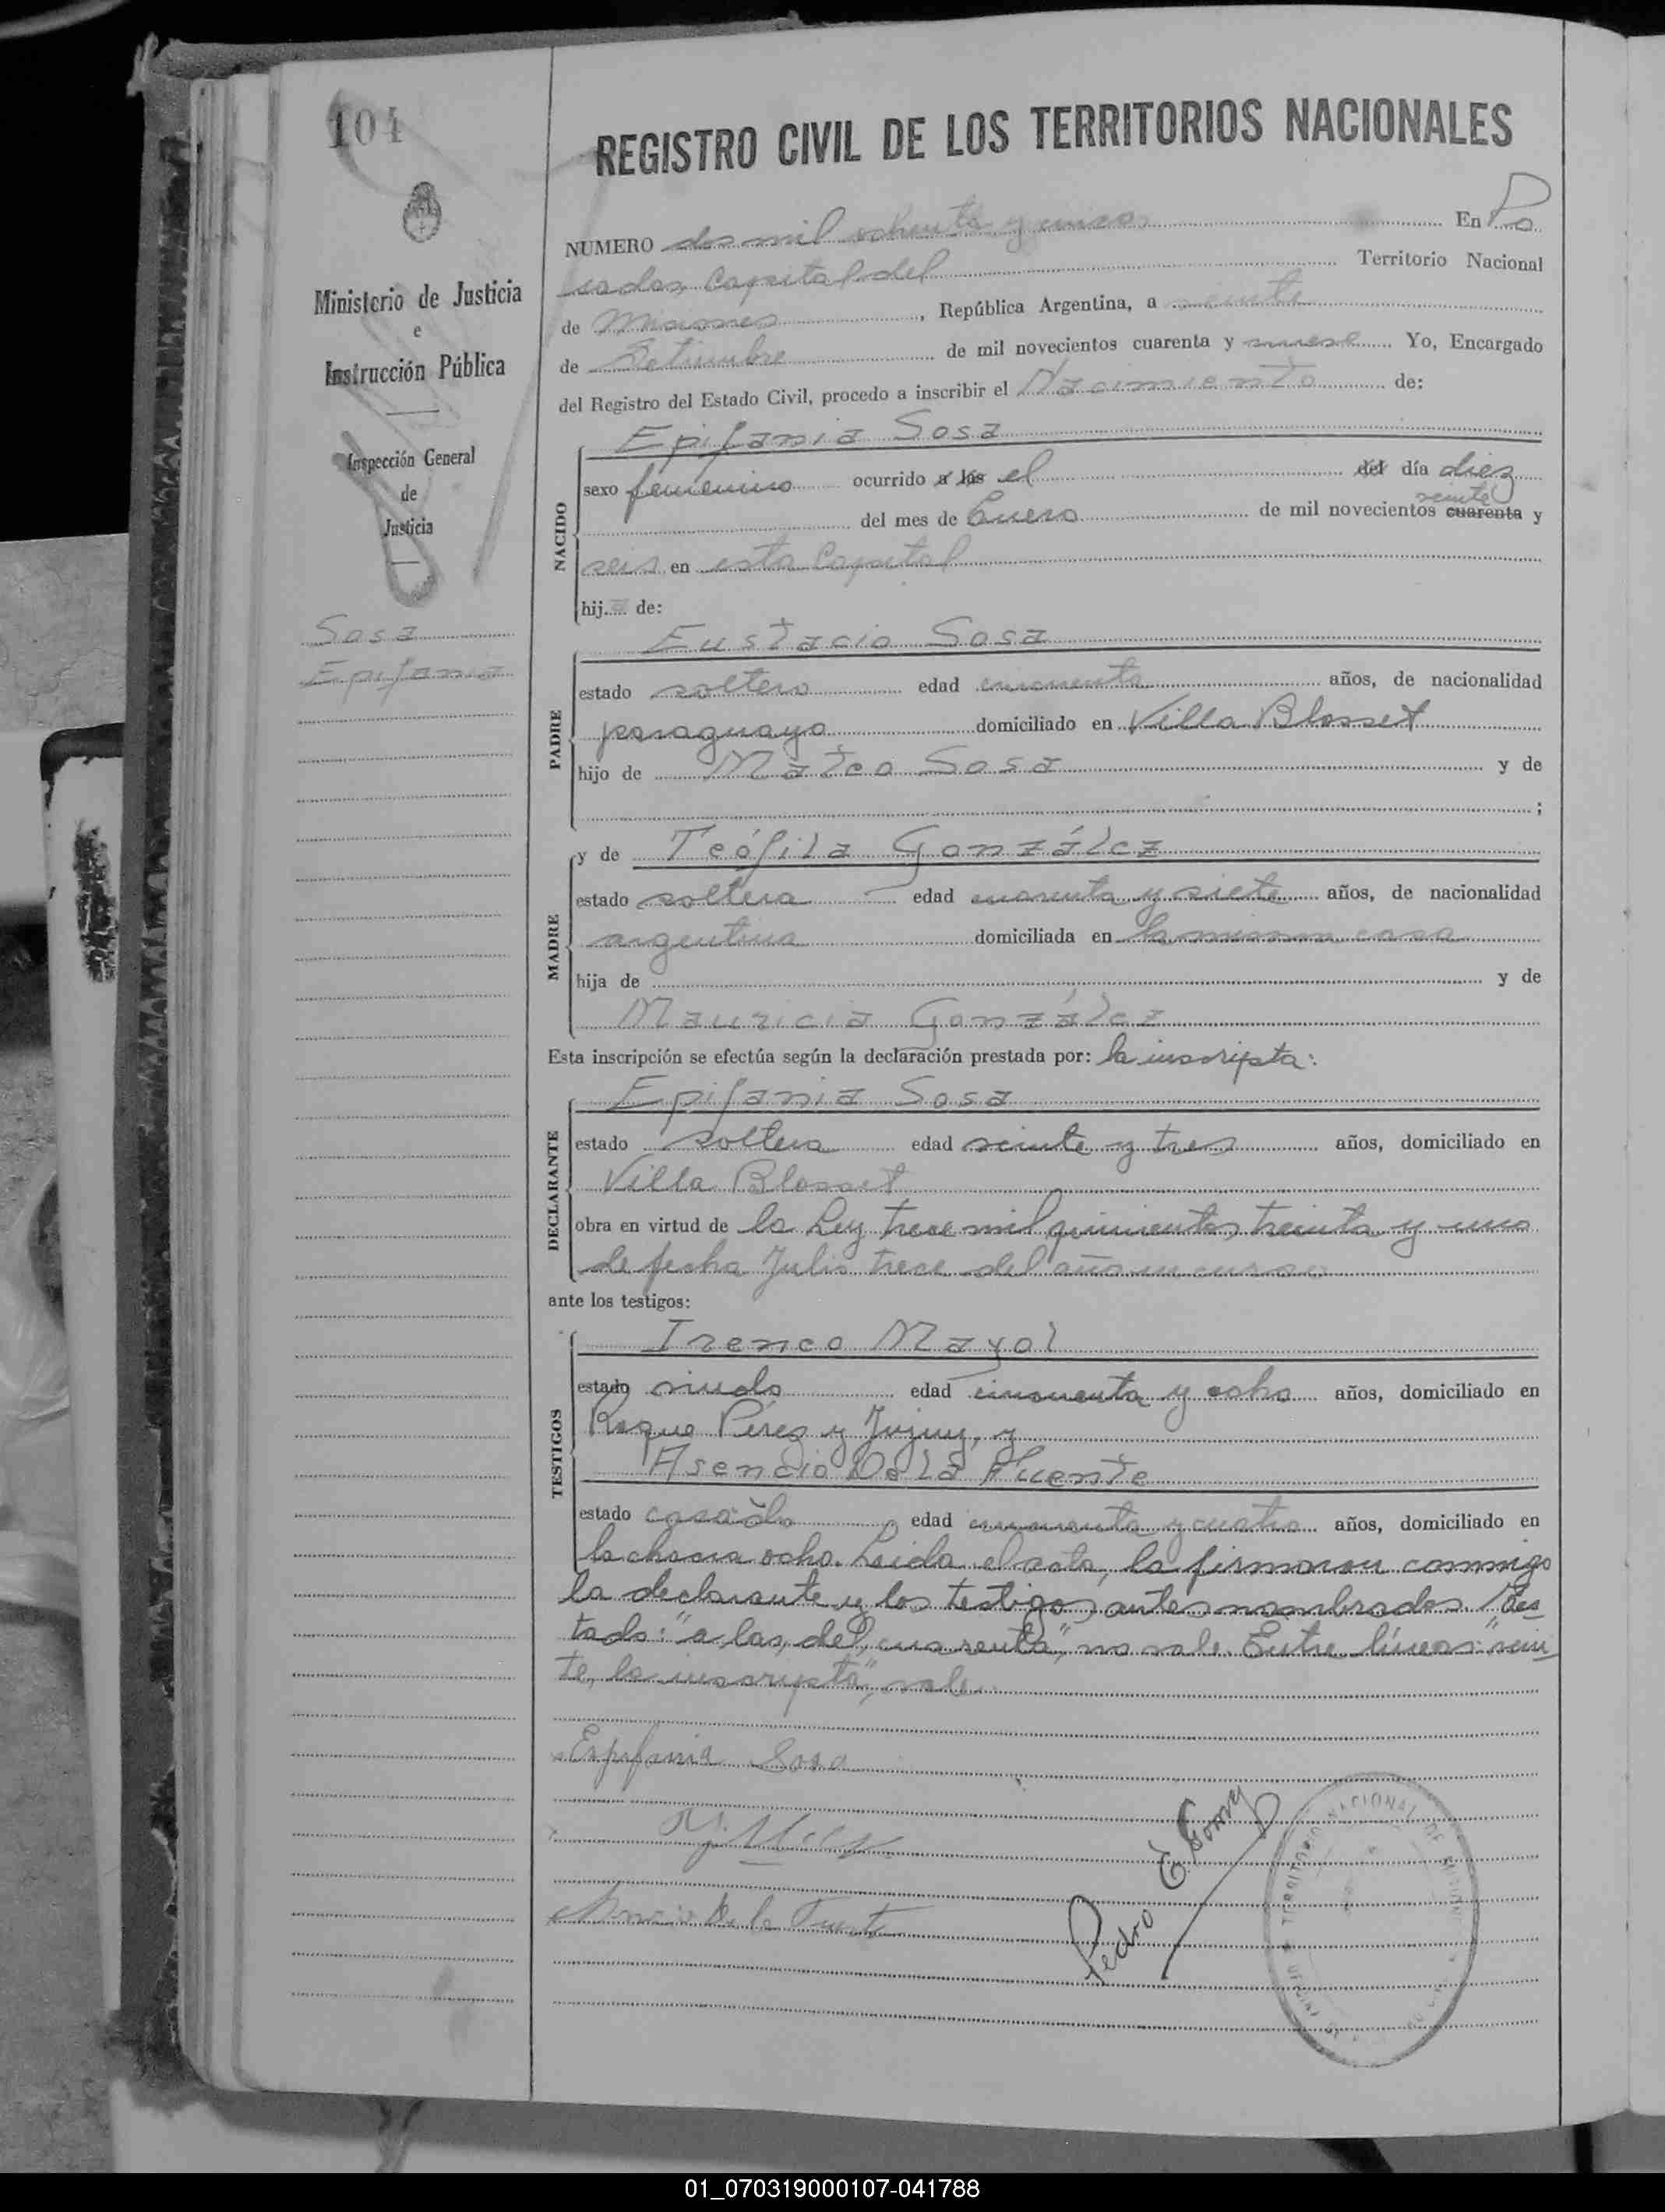 104
REGISTRO CIVIL DE LOS TERRITORIOS NACIONALES
Ministerio de Justicia
e
Instrucción Pública
Inspección General
de
Justicia
Sosa
Epifania
NUMERO dos mil ochenta y cinco En Po
sadas, Capital del Territorio Nacional
de Misiones, República Argentina, a veinte
de Setiembre de mil novecientos cuarenta y nueve Yo, Encargado
del Registro del Estado Civil, procedo a inscribir el Nacimiento de:
NACIDO
Epifania Sosa
sexo femenino ocurrido a las el del día diez
veinte
del mes de Enero de mil novecientos cuarenta y
seis en esta Capital
hija de:
PADRE
Eustacio Sosa
estado soltero edad cincuenta años, de nacionalidad
paraguayo domiciliado en Villa Blosset
hijo de Mateo Sosa y de
;
MADRE
y de Teófila González
estado soltera edad cuarenta y siete años, de nacionalidad
argentina domiciliada en la misma casa
hija de y de
Mauricia González
Esta inscripción se efectúa según la declaración prestada por: la inscripta:
DECLARANTE
Epifania Sosa
estado soltera edad veinte y tres años, domiciliado en
Villa Blosset
obra en virtud de la Ley trece mil quinientos treinta y uno
de fecha Julio trece del año en curso
ante los testigos:
TESTIGOS
Ireneo Mayol
estado viudo edad cincuenta y ocho años, domiciliado en
Roque Pérez y Jujuy, y
Asencio De la Fuente
estado casado edad cincuenta y cuatro años, domiciliado en
la chacra ocho. Leida el acta, la firmaron conmigo
la declarante y los testigos antes nombrados. Tes
tado: "a las, del, cuarenta", no vale. Entre líneas: "vein
te, la inscripta", vale.
Epifania Sosa
Asencio De la Fuente
Pedro E.
TERRITORIO NACIONAL DE
01_070319000107-041788